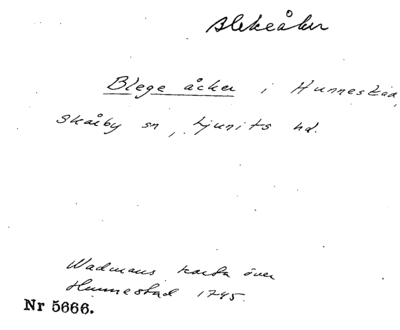 Blekeåker
Blege åcker i Hunnestad,
Skårby sn, Ljunits hd.
Wadmans karta över
Hunnestad 1745.
Nr 5666.